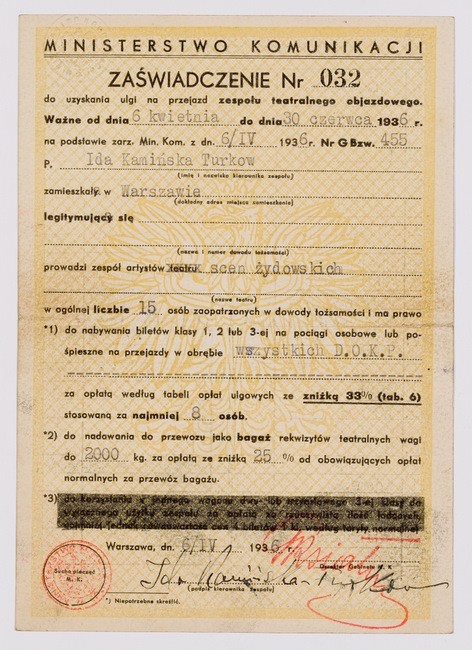 MINISTERSTWO KOMUNIKACJI
ZAŚWIADCZENIE Nr 032
do uzyskania ulgi na przejazd zespołu teatralnego objazdowego.
Ważne od dnia 6 kwietnia do dnia 30 czerwca 1936 r.
na podstawie zarz. Min. Kom. z dn. 6/IV 1936 r. Nr G Bzw. 455
P. Ida Kamińska Turkow
(imię i nazwisko kierownika zespołu)
zamieszkały w Warszawie
(dokładny adres miejsca zamieszkania)
legitymujący się
(nazwa i numer dowodu tożsamości)
prowadzi zespół artystów teatru scen żydowskich
(nazwa teatru)
w ogólnej liczbie 15 osób zaopatrzonych w dowody tożsamości i ma prawo
*1) do nabywania biletów klasy 1, 2 lub 3-ej na pociągi osobowe lub po-
śpieszne na przejazdy w obrębie wszystkich D.O.K.P.
za opłatą według tabeli opłat ulgowych ze zniżką 33% (tab. 6)
stosowaną za najmniej 8 osób.
*2) do nadawania do przewozu jako bagaż rekwizytów teatralnych wagi
do 2000 kg. za opłatą ze zniżką 25 % od obowiązujących opłat
normalnych za przewóz bagażu.
*3) do korzystania z jednego wagonu dwu- lub trzyosiowego 3-ej klasy do
wyłącznego użytku zespołu za opłatą za rzeczywistą ilość jadących,
Warszawa, dn. 6/IV 1936 r.
Sucha pieczęć
M. K.
Dyrektor Gabinetu M. K.
Ida Kamińska-Turkow
(podpis kierownika zespołu)
*) Niepotrzebne skreślić.